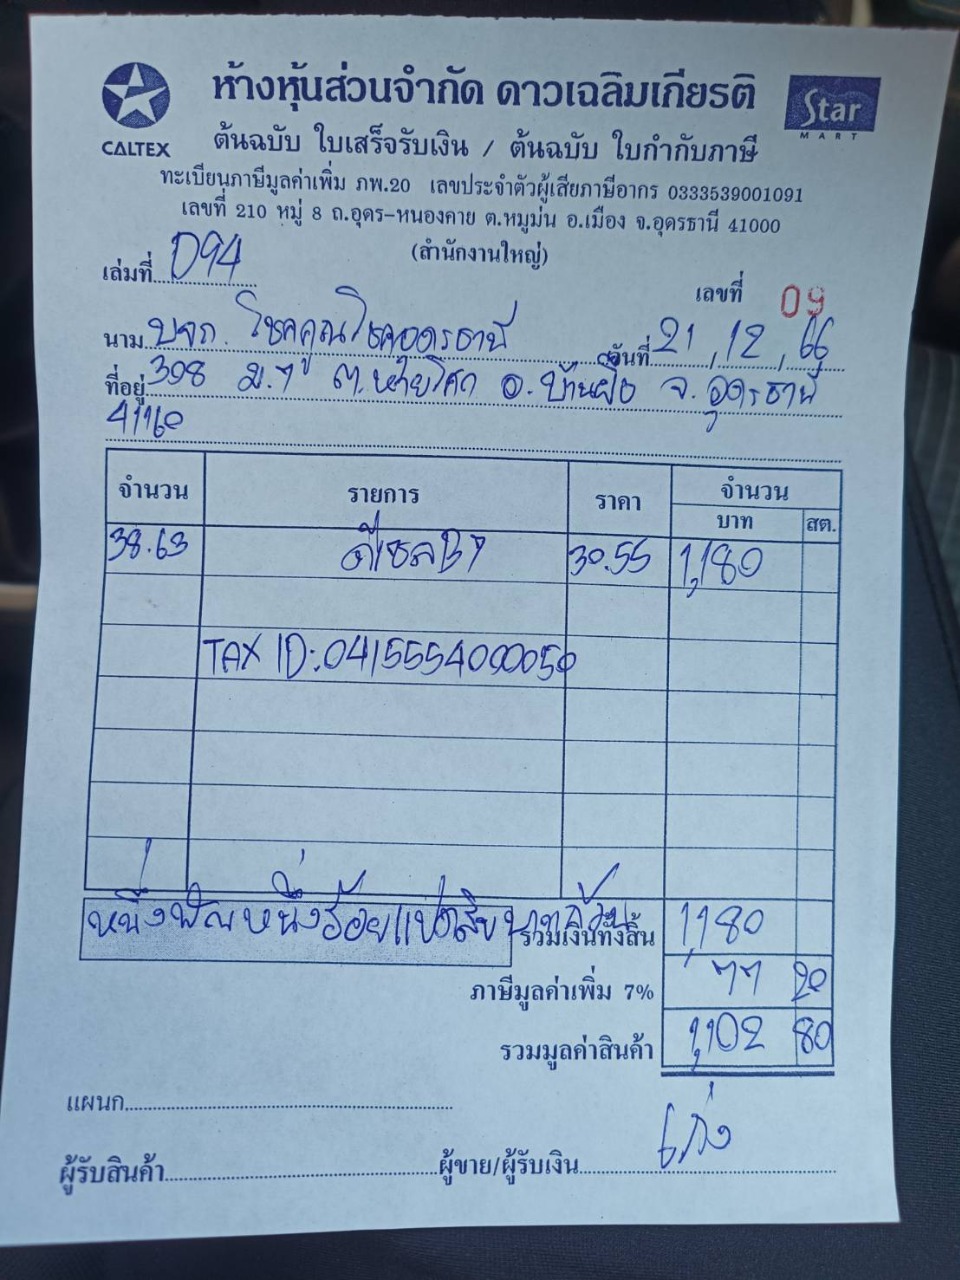 CALTEX
ห้างหุ้นส่วนจำกัด ดาวเฉลิมเกียรติ
Star
MART
ต้นฉบับ ใบเสร็จรับเงิน / ต้นฉบับ ใบกำกับภาษี
ทะเบียนภาษีมูลค่าเพิ่ม ภพ.20 เลขประจำตัวผู้เสียภาษีอากร 0333539001091
เลขที่ 210 หมู่ 8 ถ.อุดร-หนองคาย ต.หมูม่น อ.เมือง จ.อุดรธานี 41000
(สำนักงานใหญ่)
เล่มที่ 094
เลขที่ 09
นาม บจก. โชคคูณโชคอุดรธานี วันที่ 21, 12, 66
ที่อยู่ 398 ม.7 ต. อ.บ้านผือ จ.อุดรธานี
41160
จำนวน รายการ ราคา จำนวน
บาท สต.
38.63 ดีเซลB7 30.55 1,180
TAX ID:0415554000050
หนึ่งพันหนึ่งร้อยแปดสิบบาทถ้วน รวมเงินทั้งสิ้น 1,180
ภาษีมูลค่าเพิ่ม 7% 77 20
รวมมูลค่าสินค้า 1,102 80
แผนก
ผู้รับสินค้า ผู้ขาย/ผู้รับเงิน เก่ง